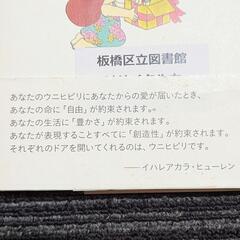 板橋区立図書館
あなたのウニヒピリにあなたからの愛が届いたとき、
あなたの命に「自由」が約束されます。
あなたの生活に「豊かさ」が約束されます。
あなたが表現することすべてに「創造性」が約束されます。
それぞれのドアを開いてくれるのは、ウニヒピリです。
――イハレアカラ・ヒューレン